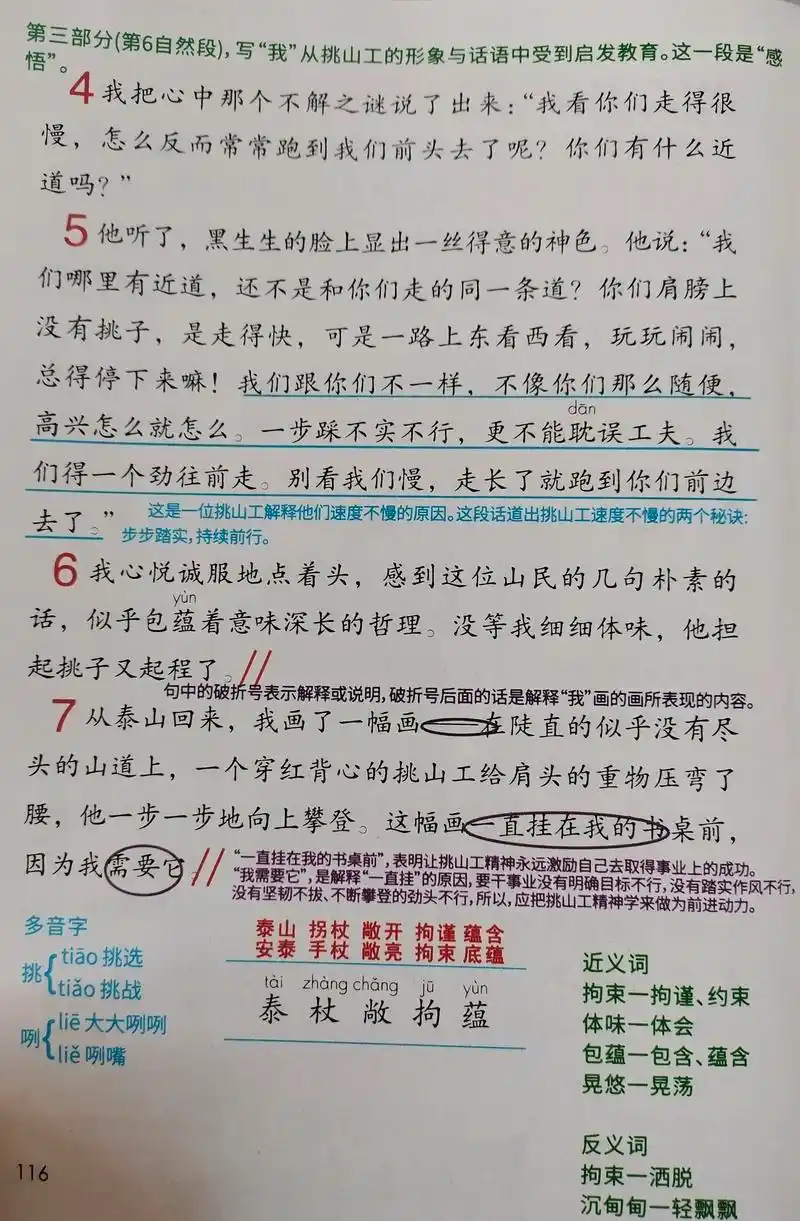 第三部分(第6自然段),写“我”从挑山工的形象与话语中受到启发教育。这一段是“感
悟”。
4 我把心中那个不解之谜说了出来:“我看你们走得很
慢,怎么反而常常跑到我们前头去了呢?你们有什么近
道吗?”
5 他听了,黑生生的脸上显出一丝得意的神色。他说:“我
们哪里有近道,还不是和你们走的同一条道?你们肩膀上
没有挑子,是走得快,可是一路上东看西看,玩玩闹闹,
总得停下来嘛!我们跟你们不一样,不像你们那么随便,
dān
高兴怎么就怎么。一步踩不实不行,更不能耽误工夫。我
们得一个劲往前走。别看我们慢,走长了就跑到你们前边
去了。”
这是一位挑山工解释他们速度不慢的原因。这段话道出挑山工速度不慢的两个秘诀:
步步踏实,持续前行。
6 我心悦诚服地点着头,感到这位山民的几句朴素的
yùn
话,似乎包蕴着意味深长的哲理。没等我细细体味,他担
起挑子又起程了。//
句中的破折号表示解释或说明,破折号后面的话是解释“我”画的画所表现的内容。
7 从泰山回来,我画了一幅画——在陡直的似乎没有尽
头的山道上,一个穿红背心的挑山工给肩头的重物压弯了
腰,他一步一步地向上攀登。这幅画一直挂在我的书桌前,
因为我需要它。//
“一直挂在我的书桌前”,表明让挑山工精神永远激励自己去取得事业上的成功。
“我需要它”,是解释“一直挂”的原因,要干事业没有明确目标不行,没有踏实作风不行,
没有坚韧不拔、不断攀登的劲头不行,所以,应把挑山工精神学来做为前进动力。
多音字
挑
tiāo 挑选
tiǎo 挑战
咧
liē 大大咧咧
liě 咧嘴
泰山 拐杖 敞开 拘谨 蕴含
安泰 手杖 敞亮 拘束 底蕴
tài zhàng chǎng jū yùn
泰 杖 敞 拘 蕴
近义词
拘束—拘谨、约束
体味—体会
包蕴—包含、蕴含
晃悠—晃荡
反义词
拘束—洒脱
沉甸甸—轻飘飘
116